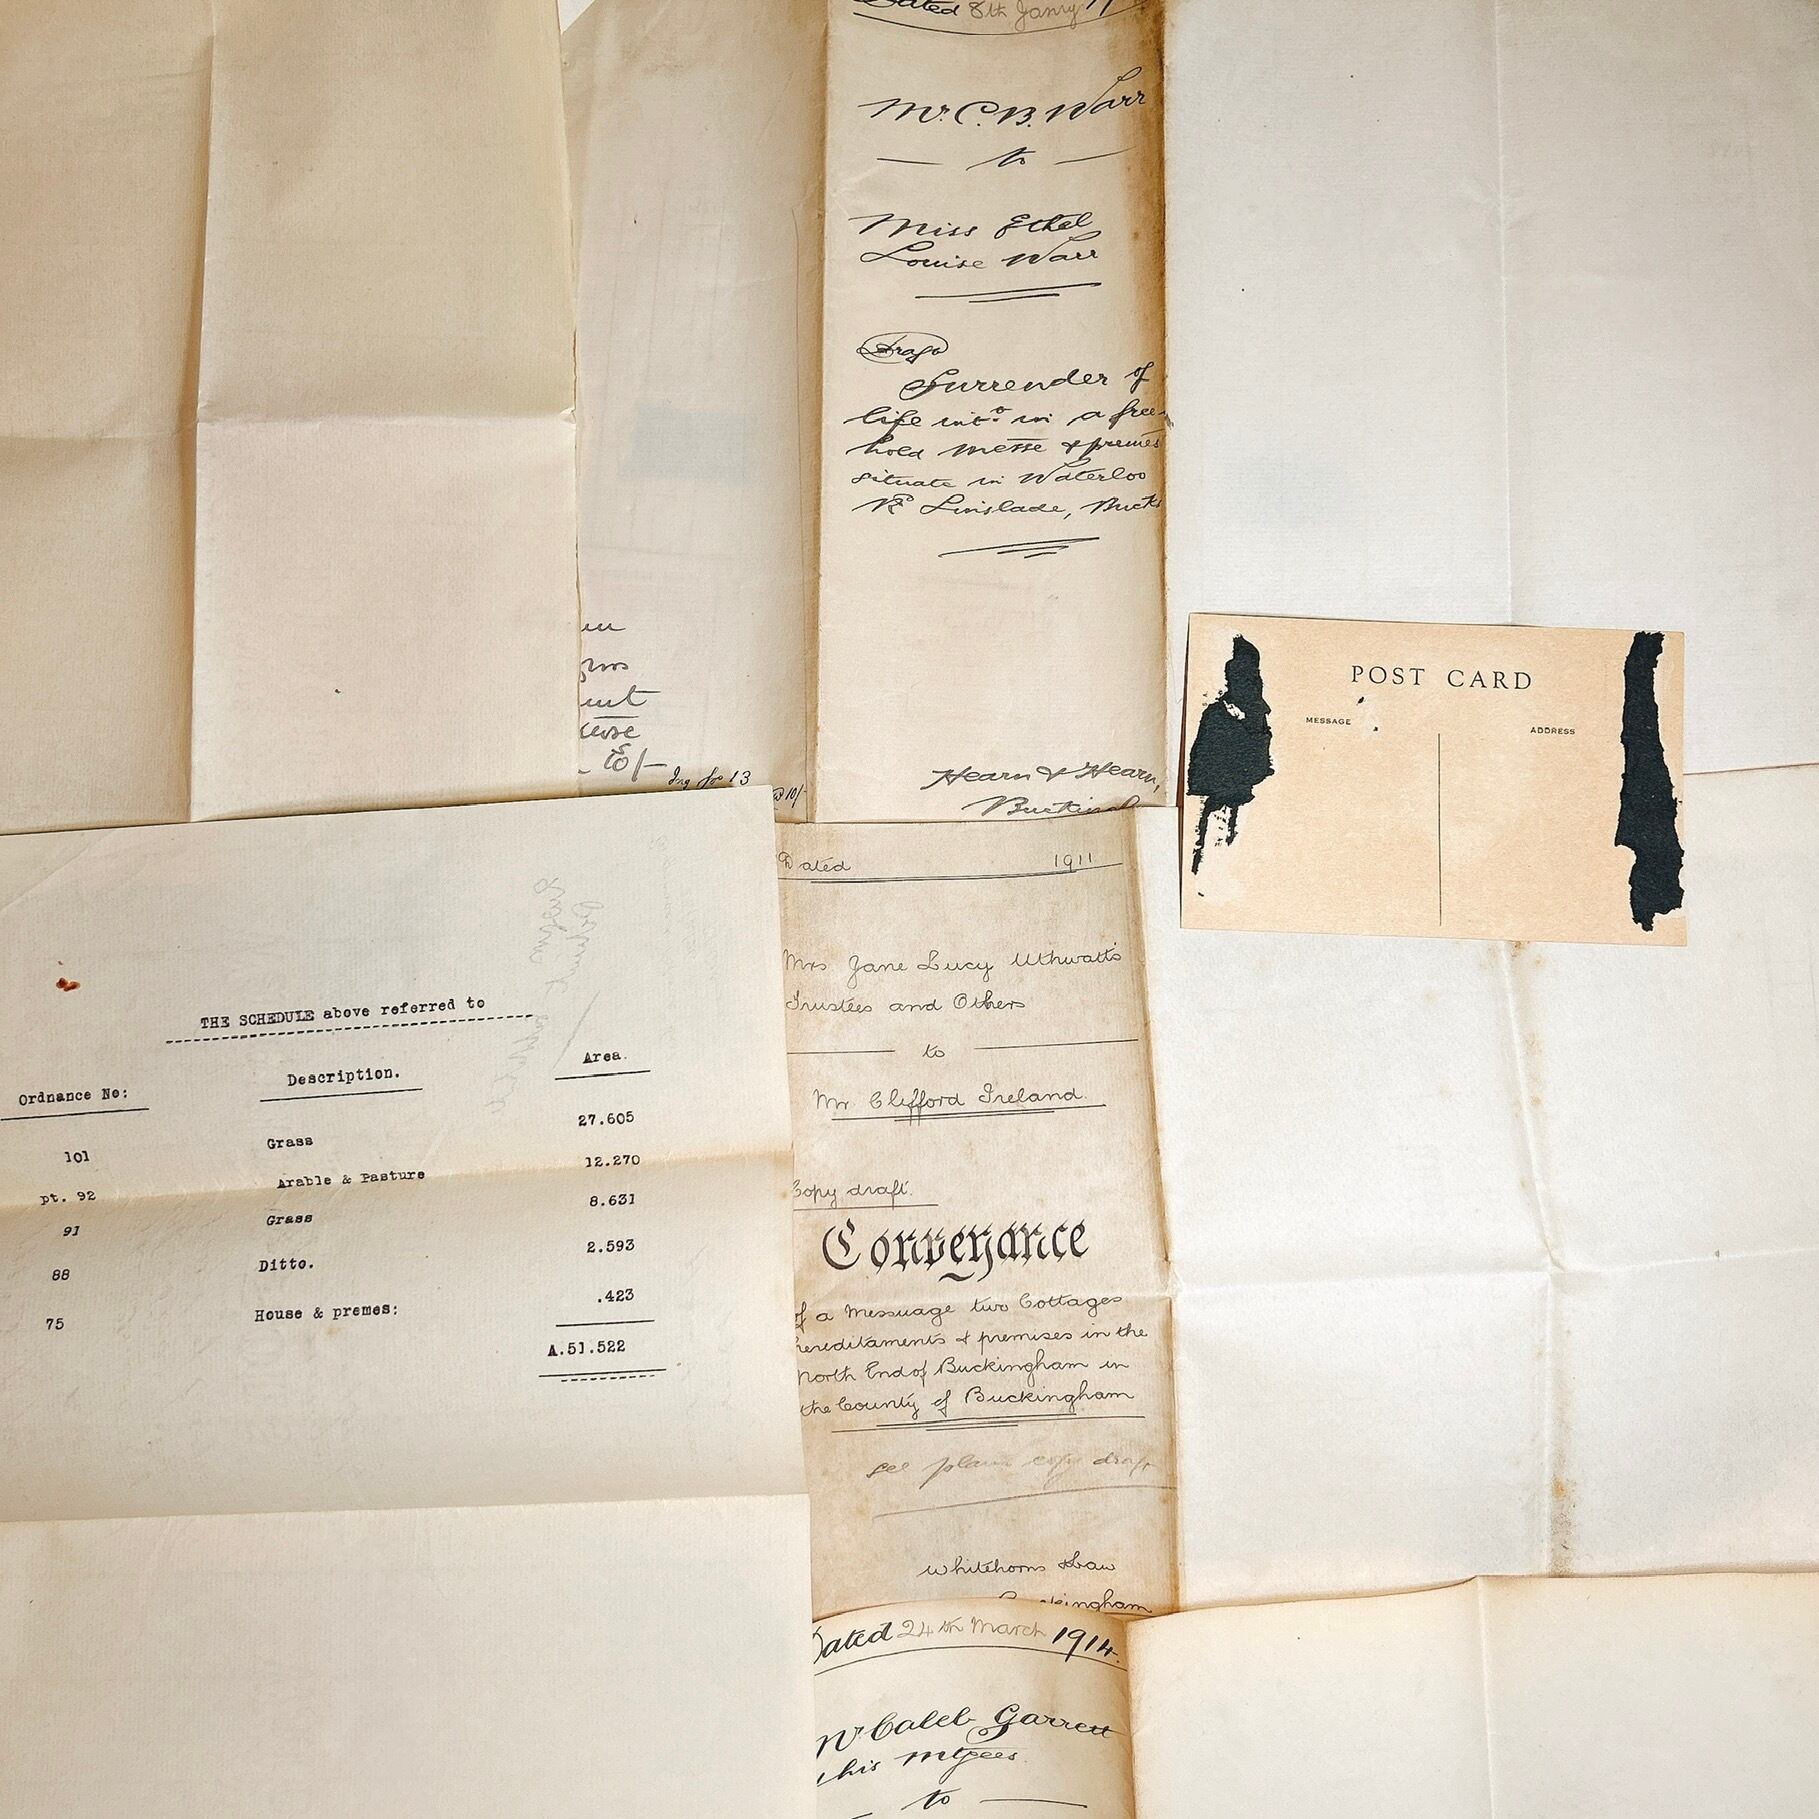 Dated 8th Janry
Mr. C. B. Warr
to
Miss Ethel
Louise Warr
Draft
Surrender of
life intt. in a free-
hold messe & premes
situate in Waterloo
Rd Linslade, Bucks
Hearn & Hearn,
Ing for 13
10/-
POST CARD
MESSAGE
ADDRESS
THE SCHEDULE above referred to
Ordnance No: Description. Area.
101 Grass 27.605
pt. 92 Arable & Pasture 12.270
91 Grass 8.631
88 Ditto. 2.593
75 House & premes: .423
A.51.522
Dated 1911
Mrs Jane Lucy Uthwatts
Trustees and Others
to
Mr. Clifford Ireland.
Copy draft.
Conveyance
of a Messuage two Cottages
hereditaments & premises in the
North End of Buckingham in
the County of Buckingham
see plain copy draft
Whitehorns & Law
Buckingham
Dated 24th March 1914.
Mr Caleb Garrett
& his mtgees
to